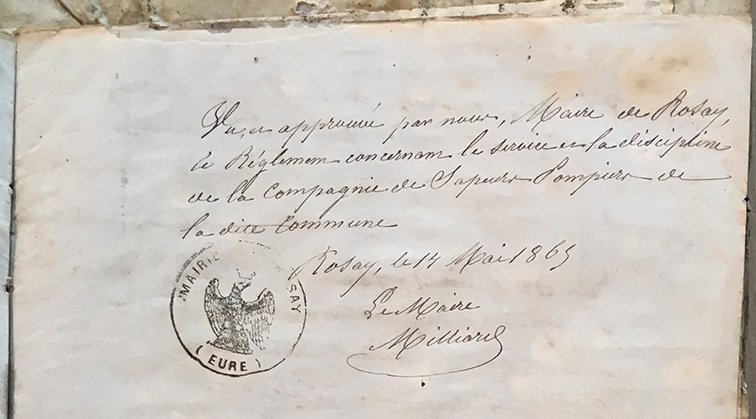 Vu, et approuvé par nous, Maire de Rosay,
le Réglement concernant le service et la discipline
de la Compagnie de Sapeurs Pompiers de
la dite Commune
Rosay, le 14 Mai 1865
Le Maire
Milliard
MAIRIE SAY
( EURE )